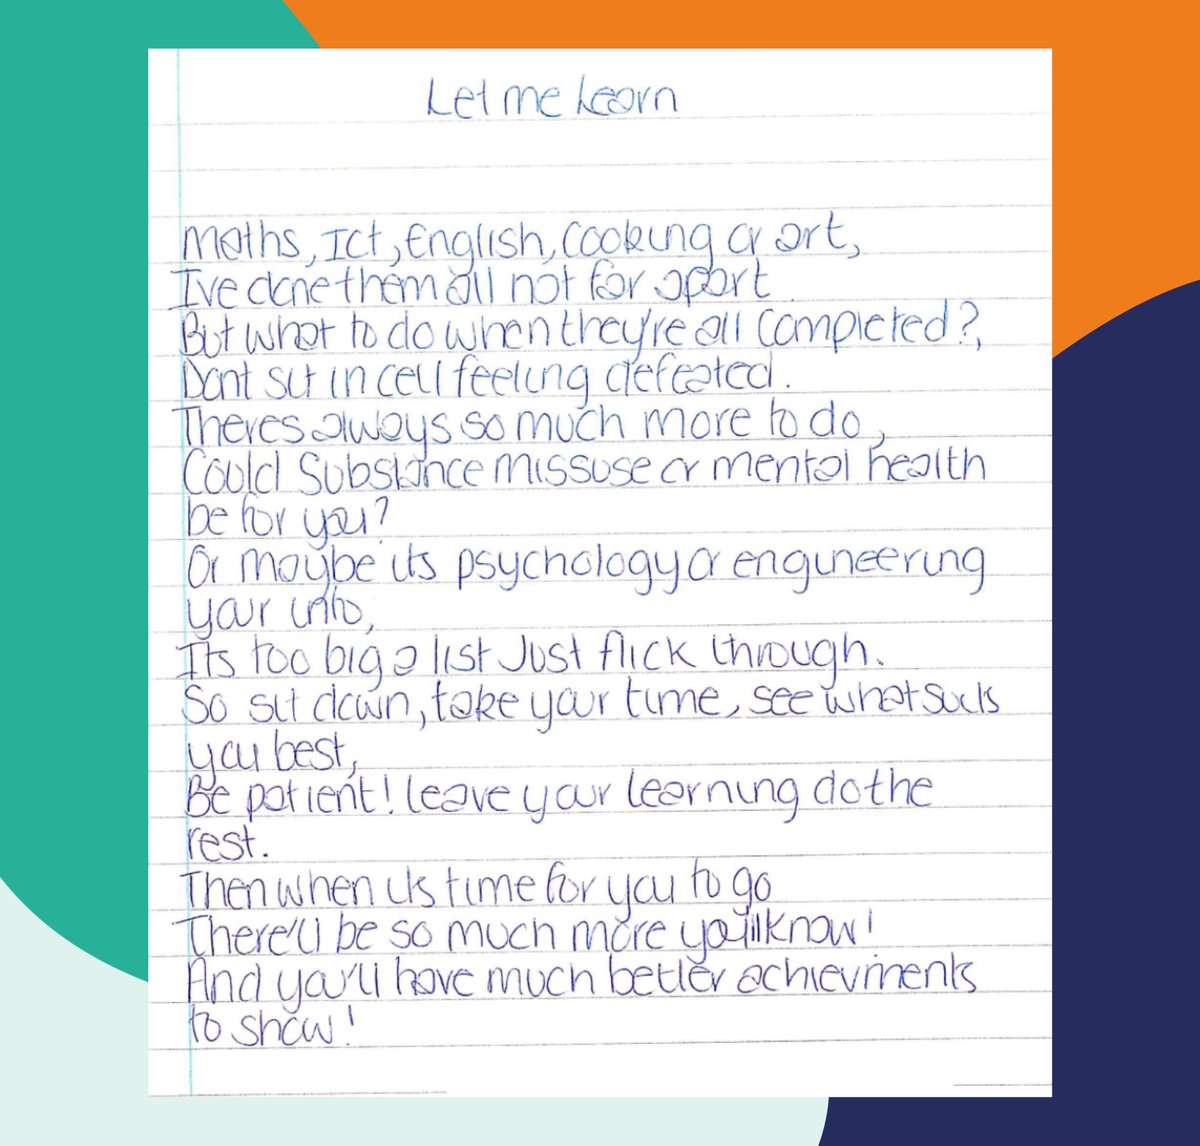 Let me Learn
Maths, Ict, English, Cooking or art,
I've done them all not for sport
But what to do when they're all completed?,
Dont sit in cell feeling defeated.
Theres always so much more to do,
Could Substance missuse or mental health
be for you?
Or maybe its psychology or engineering
your into,
Its too big a list Just flick through.
So sit down, take your time, see what suits
you best,
Be patient! leave your learning do the
rest.
Then when its time for you to go
There'll be so much more you'll know!
And you'll have much better achievments
to show!